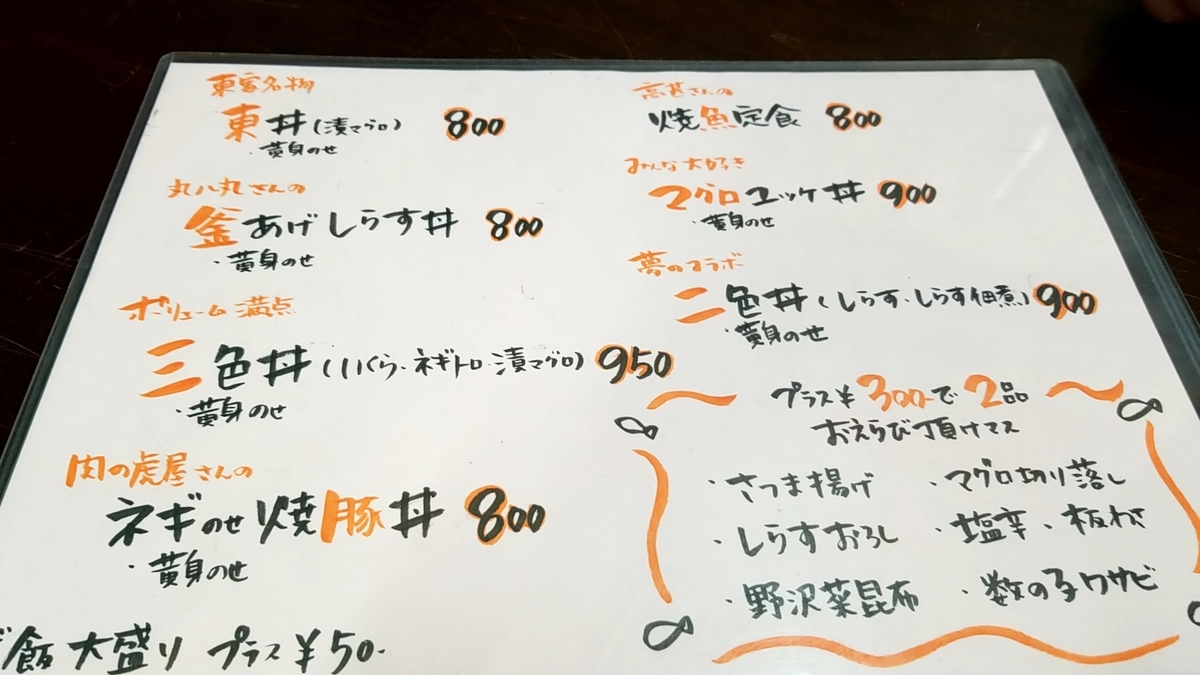 東家名物
東丼(漬マグロ) 800
・黄身のせ
丸八丸さんの
釜あげしらす丼 800
・黄身のせ
ボリューム満点
三色丼(いくら・ネギトロ・漬マグロ) 950
・黄身のせ
肉の虎屋さんの
ネギのせ焼豚丼 800
・黄身のせ
ご飯大盛り プラス¥50-
さんの
焼魚定食 800
みんな大好き
マグロユッケ丼 900
・黄身のせ
夢のコラボ
二色丼(しらす・しらす佃煮) 900
・黄身のせ
プラス¥300-で2品
おえらび頂けマス
・さつま揚げ ・マグロ切り落し
・しらすおろし ・塩辛・板わさ
・野沢菜昆布 ・数の子ワサビ